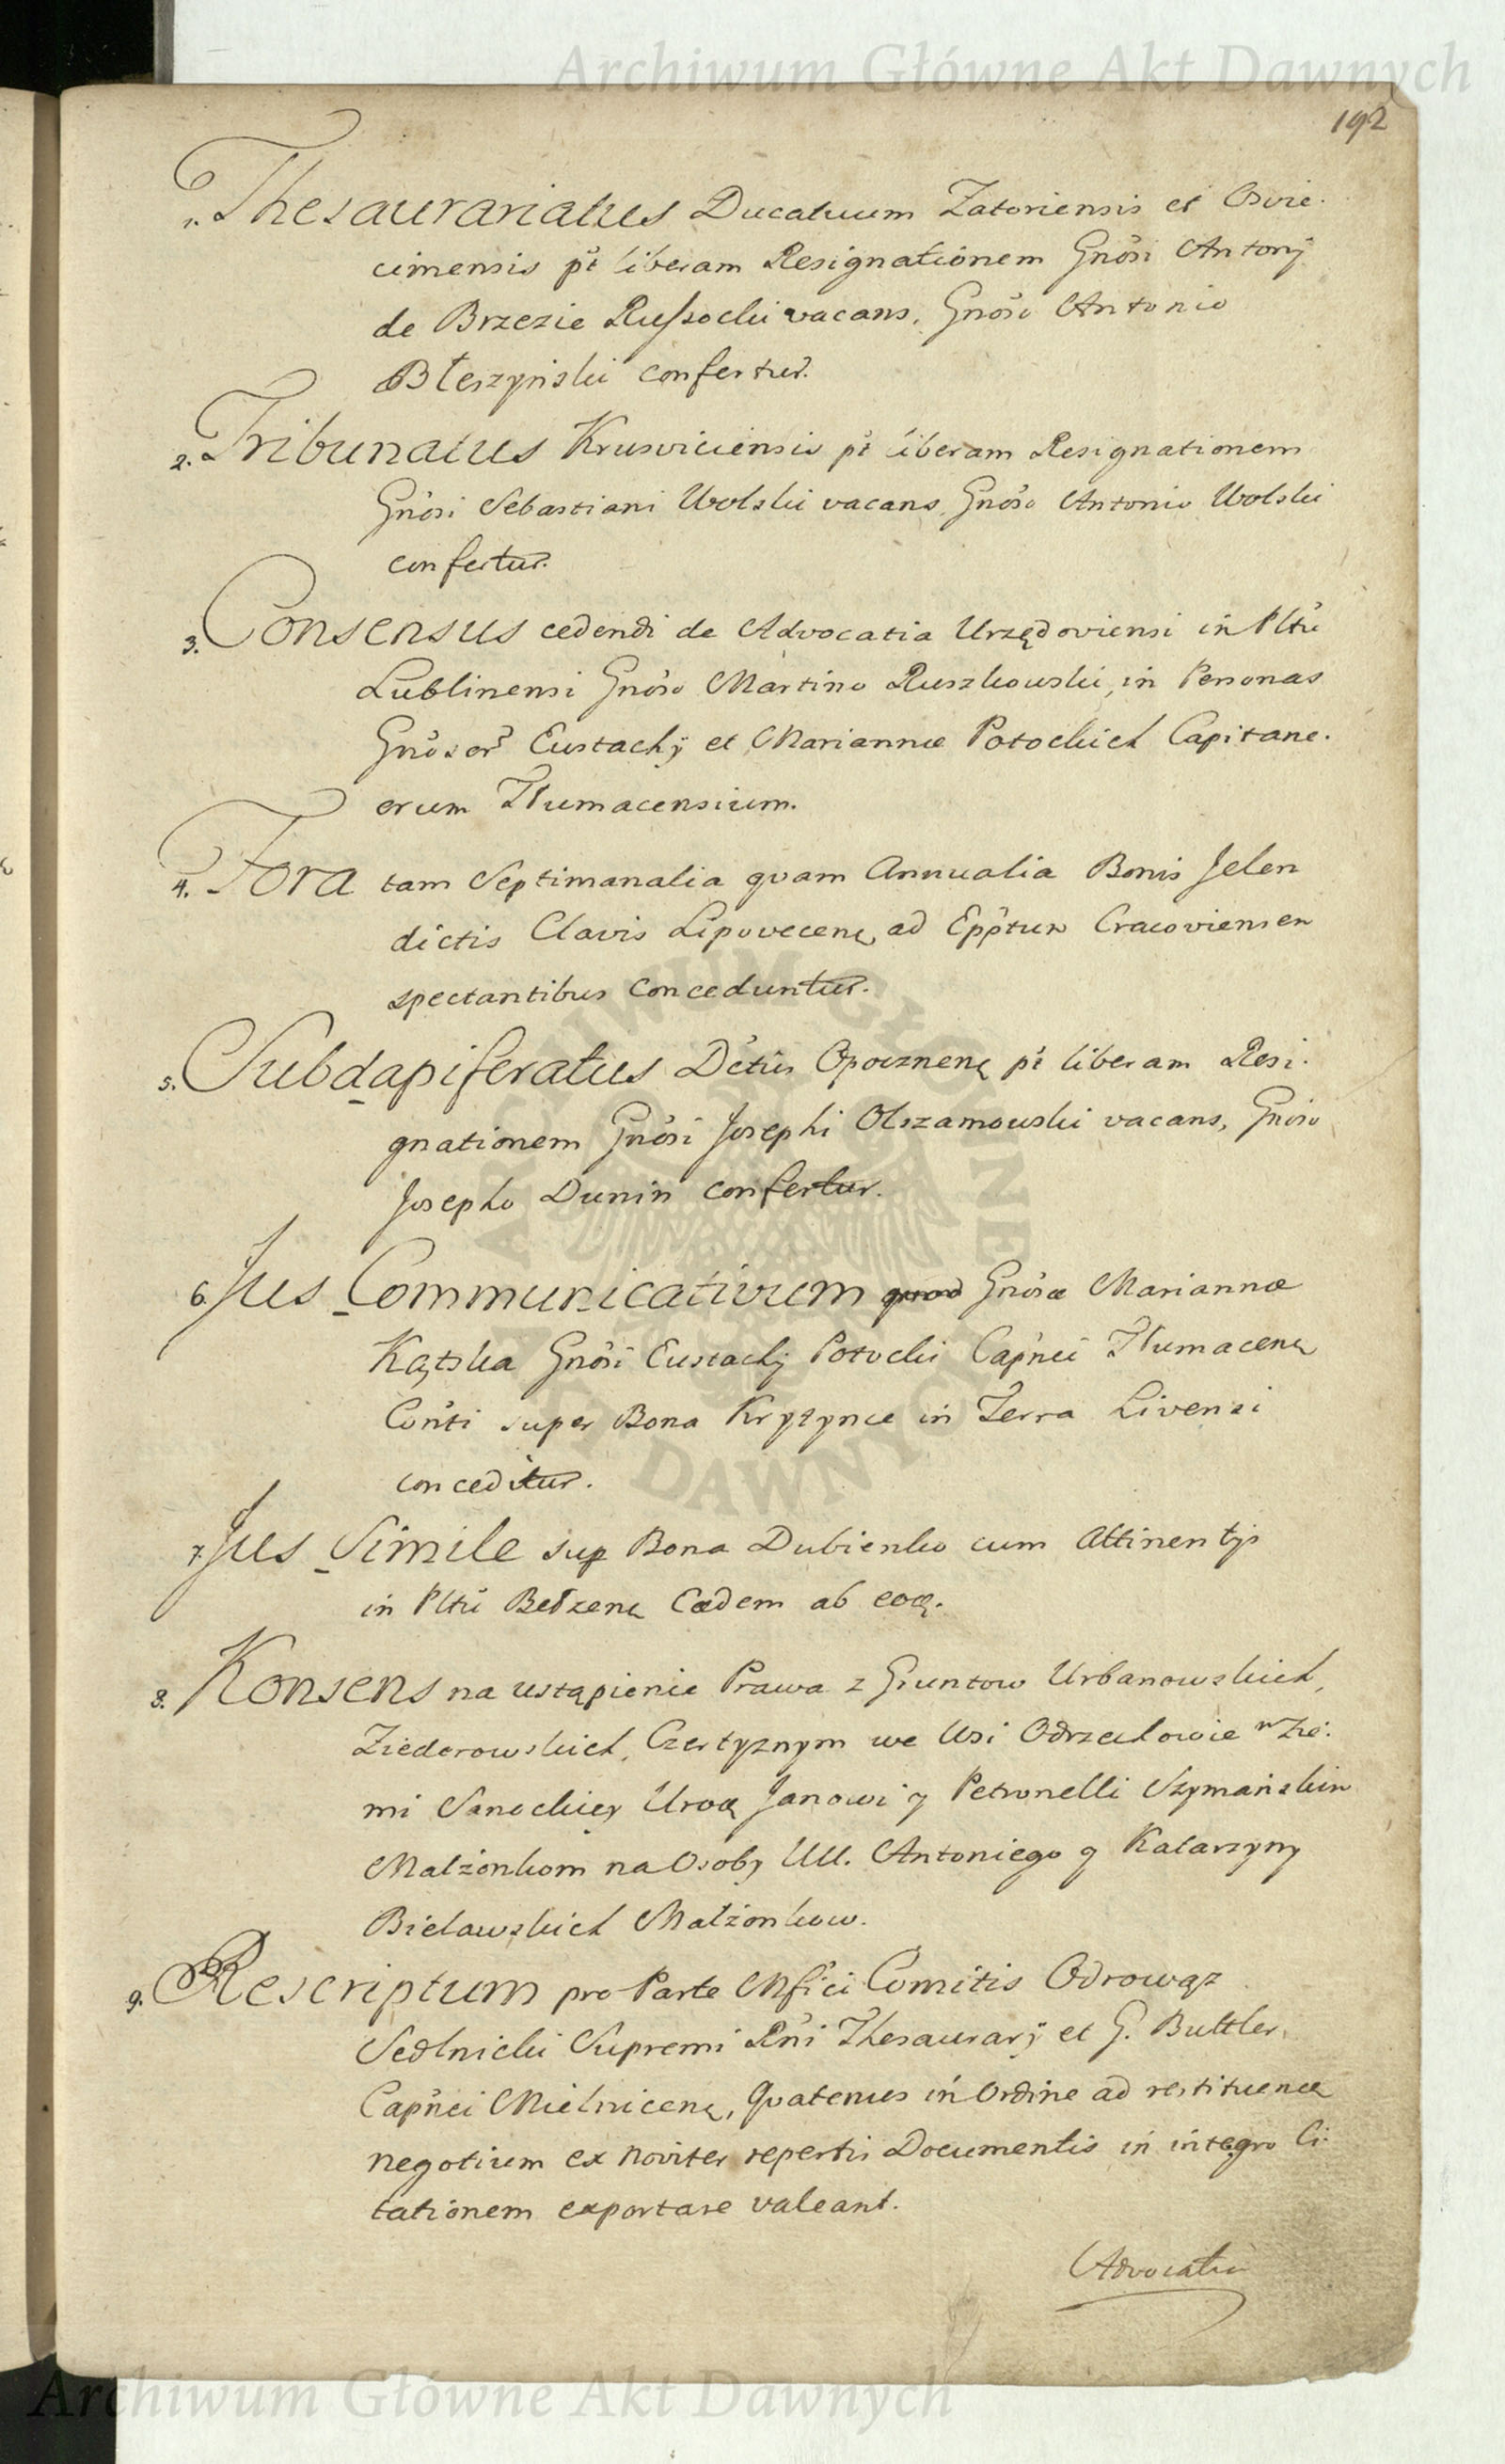 Archiwum Główne Akt Dawnych
192
1. Thesaurariatus Ducatuum Zatoriensis et Osvie.
cimensis pt liberam Resignationem Gnosi Antonij
de Brzezie Russocki vacans, Gnoso Antonio
Błeszyński confertur.
2. Tribunatus Krusviciensis pt liberam Resignationem
Gnosi Sebastiani Wolski vacans, Gnoso Antonio Wolski
confertur.
3. Consensus cedendi de Advocatia Urzędoviensi in Pltu
Lublinensi Gnoso Martino Ruszkowski, in Personas
Gnosor Eustachij et Mariannæ Potockich Capitane.
orum Tłumacensium.
4. Fora tam Septimanalia quam Annualia Bonis Jelen
dictis Clavis Lipovecen, ad Epptum Cracoviensem
spectantibus conceduntur.
5. Subdapiferatus Dctus Opocznen pt liberam Resi.
gnationem Gnosi Josephi Olszamowski vacans, Gnoso
Josepho Dunin confertur.
6. Jus Communicativum quod Gnosæ Mariannæ
Kątska Gnosi Eustachij Potocki Capnei Tłumacen
Conti super Bona Kryzynce in Terra Livensi
conceditur.
7. Jus Simile sup Bona Dubienko cum Attinentijs
in Pltu Bełzen Eædem ab eoq.
8. Konsens na ustąpienie Prawa z Gruntow Urbanowskich,
Ziederowskich, Czertyznym we Wsi Odrzechowie w Zie.
mi Sanockiey Urod Janowi y Petronelli Szymańskim
Małżonkom na Osoby UU. Antoniego y Katarzyny
Bielawskich Małżonkow.
9. Rescriptum pro Parte Mfici Comitis Odrowąz
Sedlnicki Supremi Rni Thesaurarij et G. Buttler,
Capnei Mielnicen, Quatenus in Ordine ad restituendæ
negotium ex noviter repertis Documentis in integro Ci.
tationem exportare valeant.
Advocatia
ARCHIWUM GŁÓWNE AKT DAWNYCH
Archiwum Główne Akt Dawnych